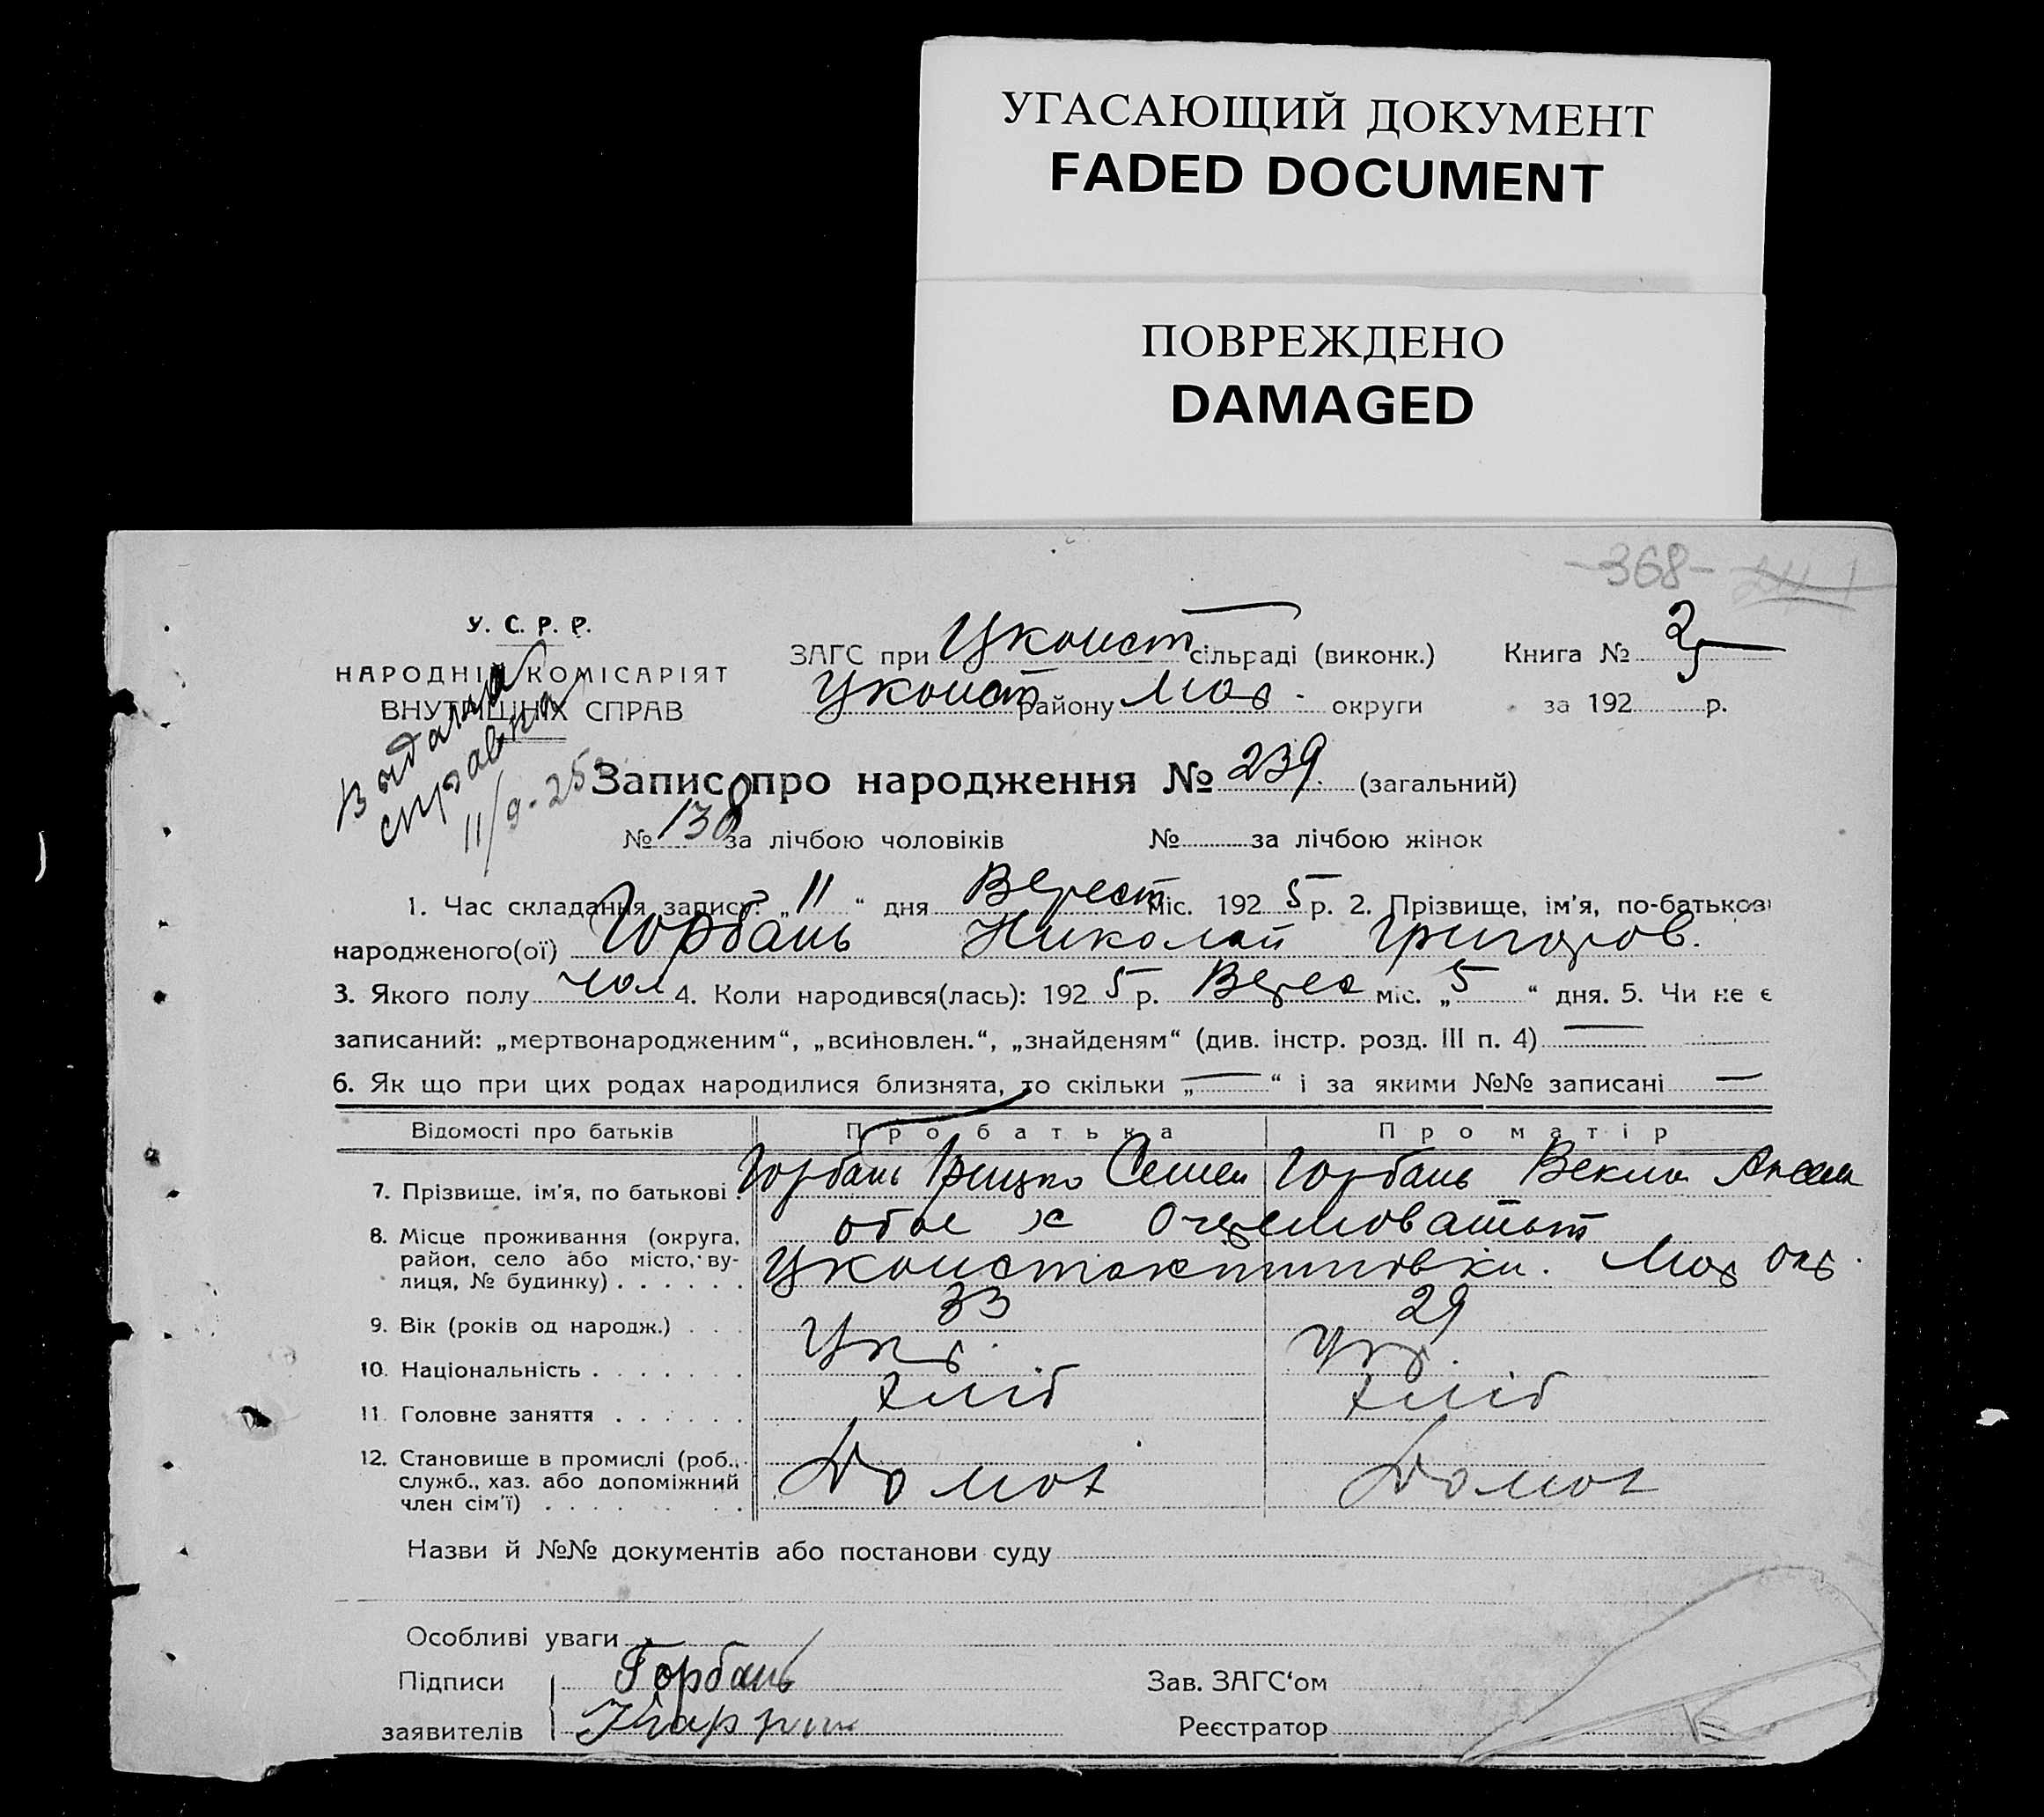 УГАСАЮЩИЙ ДОКУМЕНТ
FADED DOCUMENT
ПОВРЕЖДЕНО
DAMAGED
-368-
У. С. Р. Р.
НАРОДНІЙ КОМІСАРІЯТ
ВНУТРІШНІХ СПРАВ
справка
11/9-25
ЗАГС при Цконст сільраді (виконк.) Книга № 2
Цконст району округи за 192 5 р.
Запис про народження № 239. (загальний)
№ 138 за лічбою чоловіків № за лічбою жінок
1. Час складання запису: „11“ дня Верест міс. 192 5 р. 2. Прізвище, ім'я, по-батькові
народженого(ої) Горбань Николай Григоров.
3. Якого полу чол 4. Коли народився(лась): 192 5 р. Верес міс. „5“ дня. 5. Чи не є
записаний: „мертвонародженим“, „всиновлен.“, „знайденям“ (див. інстр. розд. III п. 4) —
6. Як що при цих родах народилися близнята, то скільки „—“ і за якими №№ записані —
Відомості про батьків Про батька Про матір
7. Прізвище, ім'я, по батькові Горбань Грицко Семен Горбань Векла
8. Місце проживання (округа, район, село або місто, вулиця, № будинку) обоє х
Цконстантиновки. окр.
9. Вік (років од народж.) 33 29
10. Національність Укр. Укр.
11. Головне заняття хліб хліб
12. Становище в промислі (роб., служб., хаз. або допоміжний член сім'ї) Домох Домох
Назви й №№ документів або постанови суду
Особливі уваги
Підписи Горбань Зав. ЗАГС'ом
заявителів Реєстратор